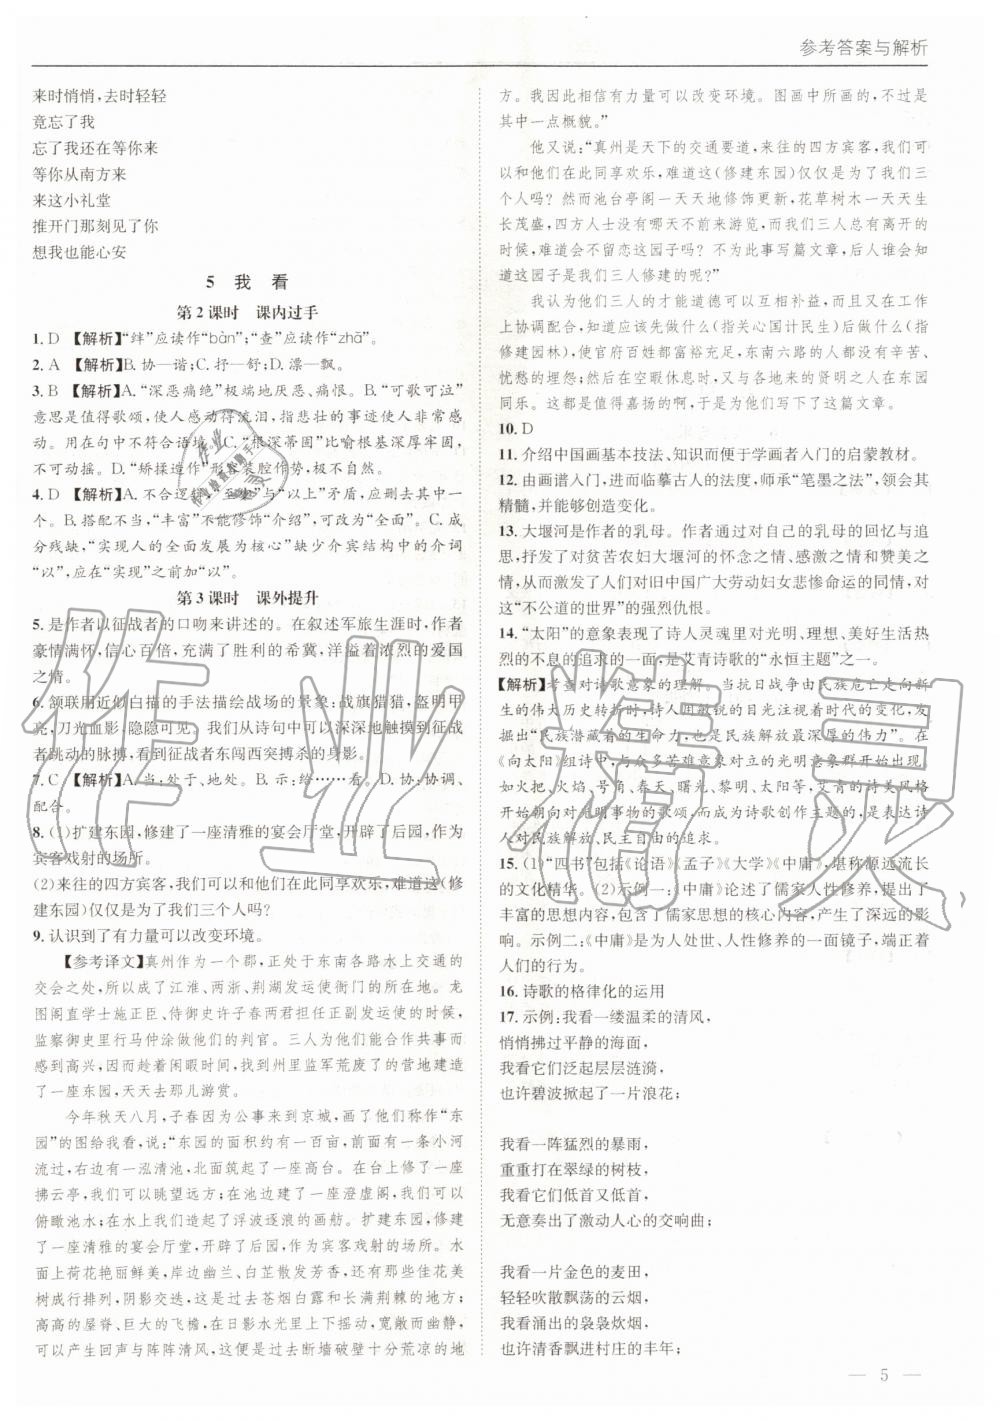 参考答案与解析
来时悄悄,去时轻轻
竟忘了我
忘了我还在等你来
等你从南方来
来这小礼堂
推开门那刻见了你
想我也能心安
5 我 看
第2课时 课内过手
1. D 【解析】“绊”应读作“bàn”;“查”应读作“zhā”。
2. A 【解析】B. 协—谐;C. 抒—舒;D. 漂—飘。
3. B 【解析】A. “深恶痛绝”极端地厌恶、痛恨。B. “可歌可泣”
意思是值得歌颂,使人感动得流泪,指悲壮的事迹使人非常感
动。用在句中不符合语境。C. “根深蒂固”比喻根基深厚牢固,
不可动摇。D. “矫揉造作”形容装腔作势,极不自然。
4. D 【解析】A. 不合逻辑,“至少”与“以上”矛盾,应删去其中一
个。B. 搭配不当,“丰富”不能修饰“介绍”,可改为“全面”。C. 成
分残缺,“实现人的全面发展为核心”缺少介宾结构中的介词
“以”,应在“实现”之前加“以”。
第3课时 课外提升
5. 是作者以征战者的口吻来讲述的。在叙述军旅生涯时,作者
豪情满怀,信心百倍,充满了胜利的希冀,洋溢着浓烈的爱国
之情。
6. 颔联用近似白描的手法描绘战场的景象:战旗猎猎,盔明甲
亮,刀光血影,隐隐可见。我们从诗句中可以深深地触摸到征战
者跳动的脉搏,看到征战者东闯西突搏杀的身影。
7. C 【解析】A. 当:处于、地处。B. 示:给……看。D. 协:协调、
配合。
8. (1)扩建东园,修建了一座清雅的宴会厅堂,开辟了后园,作为
宾客戏射的场所。
(2)来往的四方宾客,我们可以和他们在此同享欢乐,难道这(修
建东园)仅仅是为了我们三个人吗?
9. 认识到了有力量可以改变环境。
【参考译文】真州作为一个郡,正处于东南各路水上交通的
交会之处,所以成了江淮、两浙、荆湖发运使衙门的所在地。龙
图阁直学士施正臣、侍御史许子春两君担任正副发运使的时候,
监察御史里行马仲涂做他们的判官。三人为他们能合作共事而
感到高兴,因而趁着闲暇时间,找到州里监军荒废了的营地建造
了一座东园,天天去那儿游赏。
今年秋天八月,子春因为公事来到京城,画了他们称作“东
园”的图给我看,说:“东园的面积约有一百亩,前面有一条小河
流过,右边有一泓清池,北面是一座高台。在台上修了一座
拂云亭,我们可以眺望远方;在池边建了一座澄虚阁,我们可以
俯瞰池水;在水上,我们造起了浮波逐浪的画舫。扩建东园,修建
了一座清雅的宴会厅堂,开辟了后园,作为宾客戏射的场所。水
面上荷花艳丽鲜美,岸边幽兰、白芷散发芳香,还有那些佳花美
树成行排列,阴影交迭,这是过去苍烟白露和长满荆棘的地方;
高高的屋脊、巨大的飞檐,在日影水光中上下摇动,宽敞而幽静,
可以产生回声与阵阵清风,这便是过去断墙破壁十分荒凉的地
方。我因此相信有力量可以改变环境。图画中所画的,不过是
其中一点概貌。”
他又说:“真州是天下的交通要道,来往的四方宾客,我们可
以和他们在此同享欢乐,难道这(修建东园)仅仅是为了我们三
个人吗?然而池台亭阁一天天地修饰更新,花草树木一天天生
长茂盛,四方人士没有哪天不前来游览,而我们三人总有离开的
时候,难道会不留恋这园子吗?不为此事写篇文章,后人谁会知
道这园子是我们三人修建的呢?”
我认为他们三人的才能道德可以互相补益,而且在工作
上协调配合,知道应该先做什么(指关心国计民生)后做什么(指
修建园林),使官府百姓都富裕充足,东南六路的人都没有辛苦、
忧愁的埋怨;然后在空暇休息时,又和四方来的贤明之人在东园
同乐。这都是值得嘉扬的啊,于是为他们写下了这篇文章。
10. D
11. 介绍中国画基本技法、知识而便于学画者入门的启蒙教材。
12. 由画谱入门,进而临摹古人的法度,师承“笔墨之法”,领会其
精髓,并能够创造变化。
13. 大堰河是作者的乳母。作者通过对自己的乳母的回忆与追
思,抒发了对贫苦农妇大堰河的怀念之情、感激之情和赞美之
情,激发了人们对旧中国广大劳动妇女悲惨命运的同情,对
这“不公道的世界”的强烈仇恨。
14. “太阳”的意象表现了诗人灵魂里对光明、理想、美好生活热
烈的不息的追求的一面,是艾青诗歌的“永恒主题”之一。
【解析】考查对诗歌意象的理解。当抗日战争由民族危亡走向新
生的伟大历史转折时,诗人因敏锐的目光注视着时代的变化,发
出“民族潜藏着的生命力,也是民族解放最深厚的伟力”。在
《向太阳》组诗中,与众多苦难意象对立的光明意象群开始出现,
比如火、火焰、号角、春天、曙光、黎明、太阳等,艾青的诗美风格
开始转向对光明事物的歌颂,成为诗歌创作主导的意象,表达诗
人对民族解放、人民解放的追求。
15. (1)“四书”包括《论语》《孟子》《大学》《中庸》,堪称源远流长
的文化精华。(2)示例一:《中庸》论述了儒家人性修养,提出了
丰富的思想内容,包含了儒家思想的核心内容,产生了深远的影
响。示例二:《中庸》是为人处世、人性修养的一面镜子,端正着
人们的行为。
16. 诗歌的格律化的运用
17. 示例:我看一缕温柔的清风,
悄悄拂过平静的海面,
我看它们泛起层层涟漪,
也许碧波掀起了一片浪花;
我看一阵猛烈的暴雨,
重重打在翠绿的树枝,
我看它们低首又低首,
无意奏出了激动人心的交响曲;
我看一片金色的麦田,
轻轻吹散飘荡的云烟,
我看涌出的袅袅炊烟,
也许清香飘进村庄的丰年;
— 5 —
作业精灵